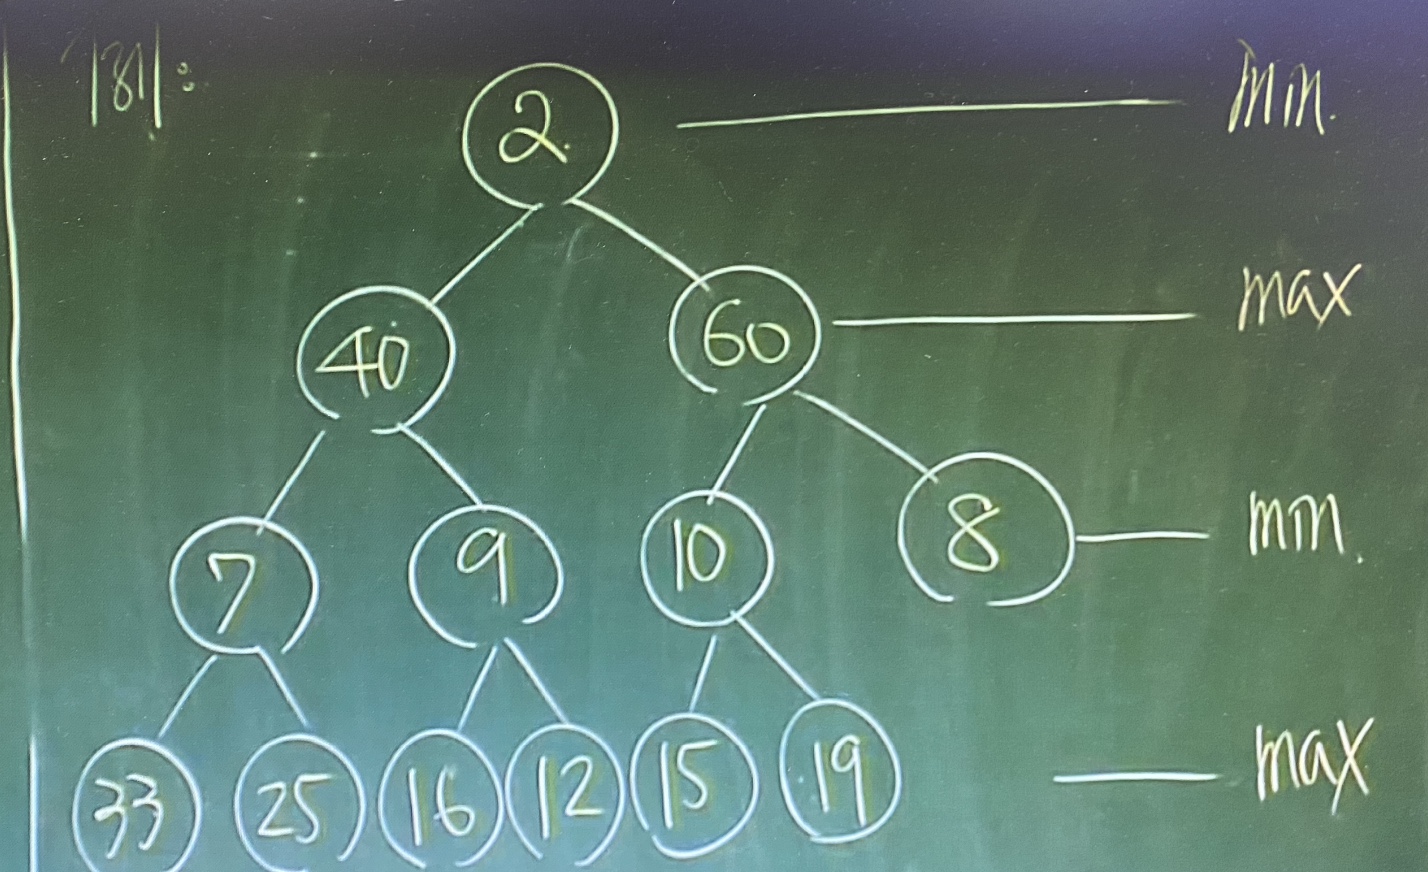 例:
2 min.
40 60 max
7 9 10 8 min.
33 25 16 12 15 19 max